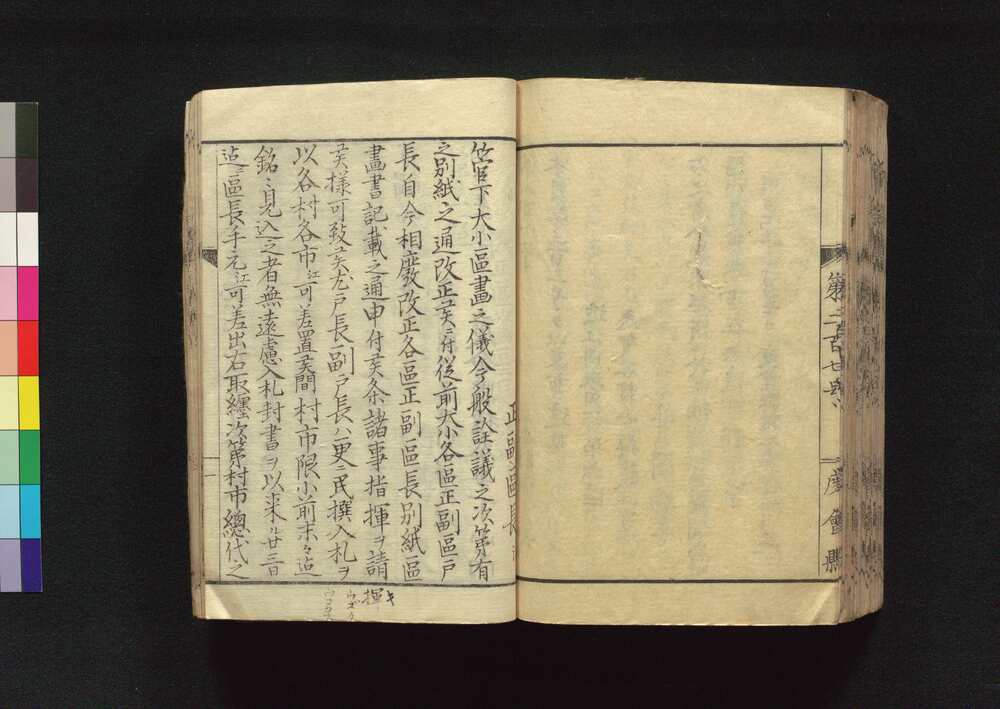 第二百廿
度會縣
正副區長
管下大小區畫之儀今般詮議之次第有
之別紙之通改正候ニ付從前大小各區正副區戸
長自今相廢改正各區正副區長別紙區
畫書記載之通申付候条諸事指揮ヲ請
候様可致候尤戸長副戸長ハ更ニ民撰入札ヲ
以各村各市江可差置候間村市限小前末々迠
銘々見込之者無遠慮入札封書ヲ以来ル廿三日
迠區長手元江可差出右取纏次第村市總代之
キ
揮